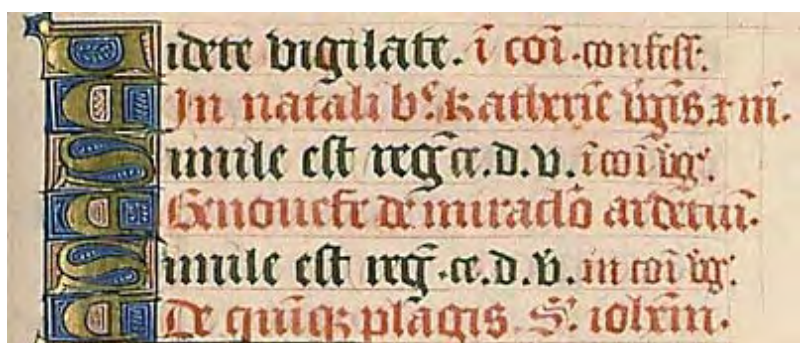 Videte vigilate. ī coī. confess.
In natali b̄e katherīe v̄gīs ⁊ m̄.
Simile est regn̄ ce. d. v. ī coī v̄g.
Genouefe de miraclo ardentiū.
Simile est regn̄. ce. d. v. in coī v̄g.
De quīq; plagis. S. ioh̄m.